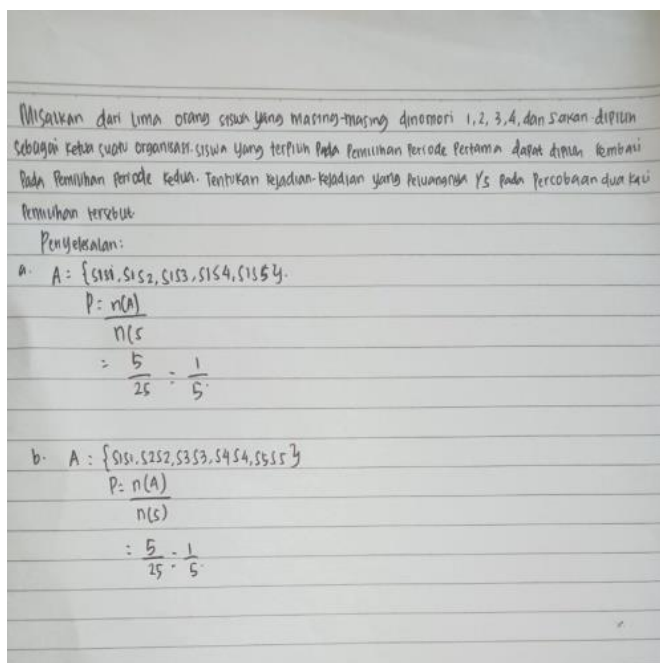 Misalkan dari Lima orang siswa yang masing-masing dinomori 1, 2, 3, 4, dan 5 akan dipilih
sebagai ketua suatu organisasi. siswa yang terpilih pada Pemilihan Periode Pertama dapat dipilih kembali
Pada Pemilihan Periode Kedua. Tentukan kejadian-kejadian yang Peluangnya 1/5 Pada Percobaan dua kali
Pemilihan tersebut.
Penyelesaian:
a. A = {S1S1, S1S2, S1S3, S1S4, S1S5}.
P = n(A)
n(s
= 5/25 = 1/5.
b. A = {S1S1, S2S2, S3S3, S4S4, S5S5}
P = n(A)
n(s)
= 5/25 = 1/5.